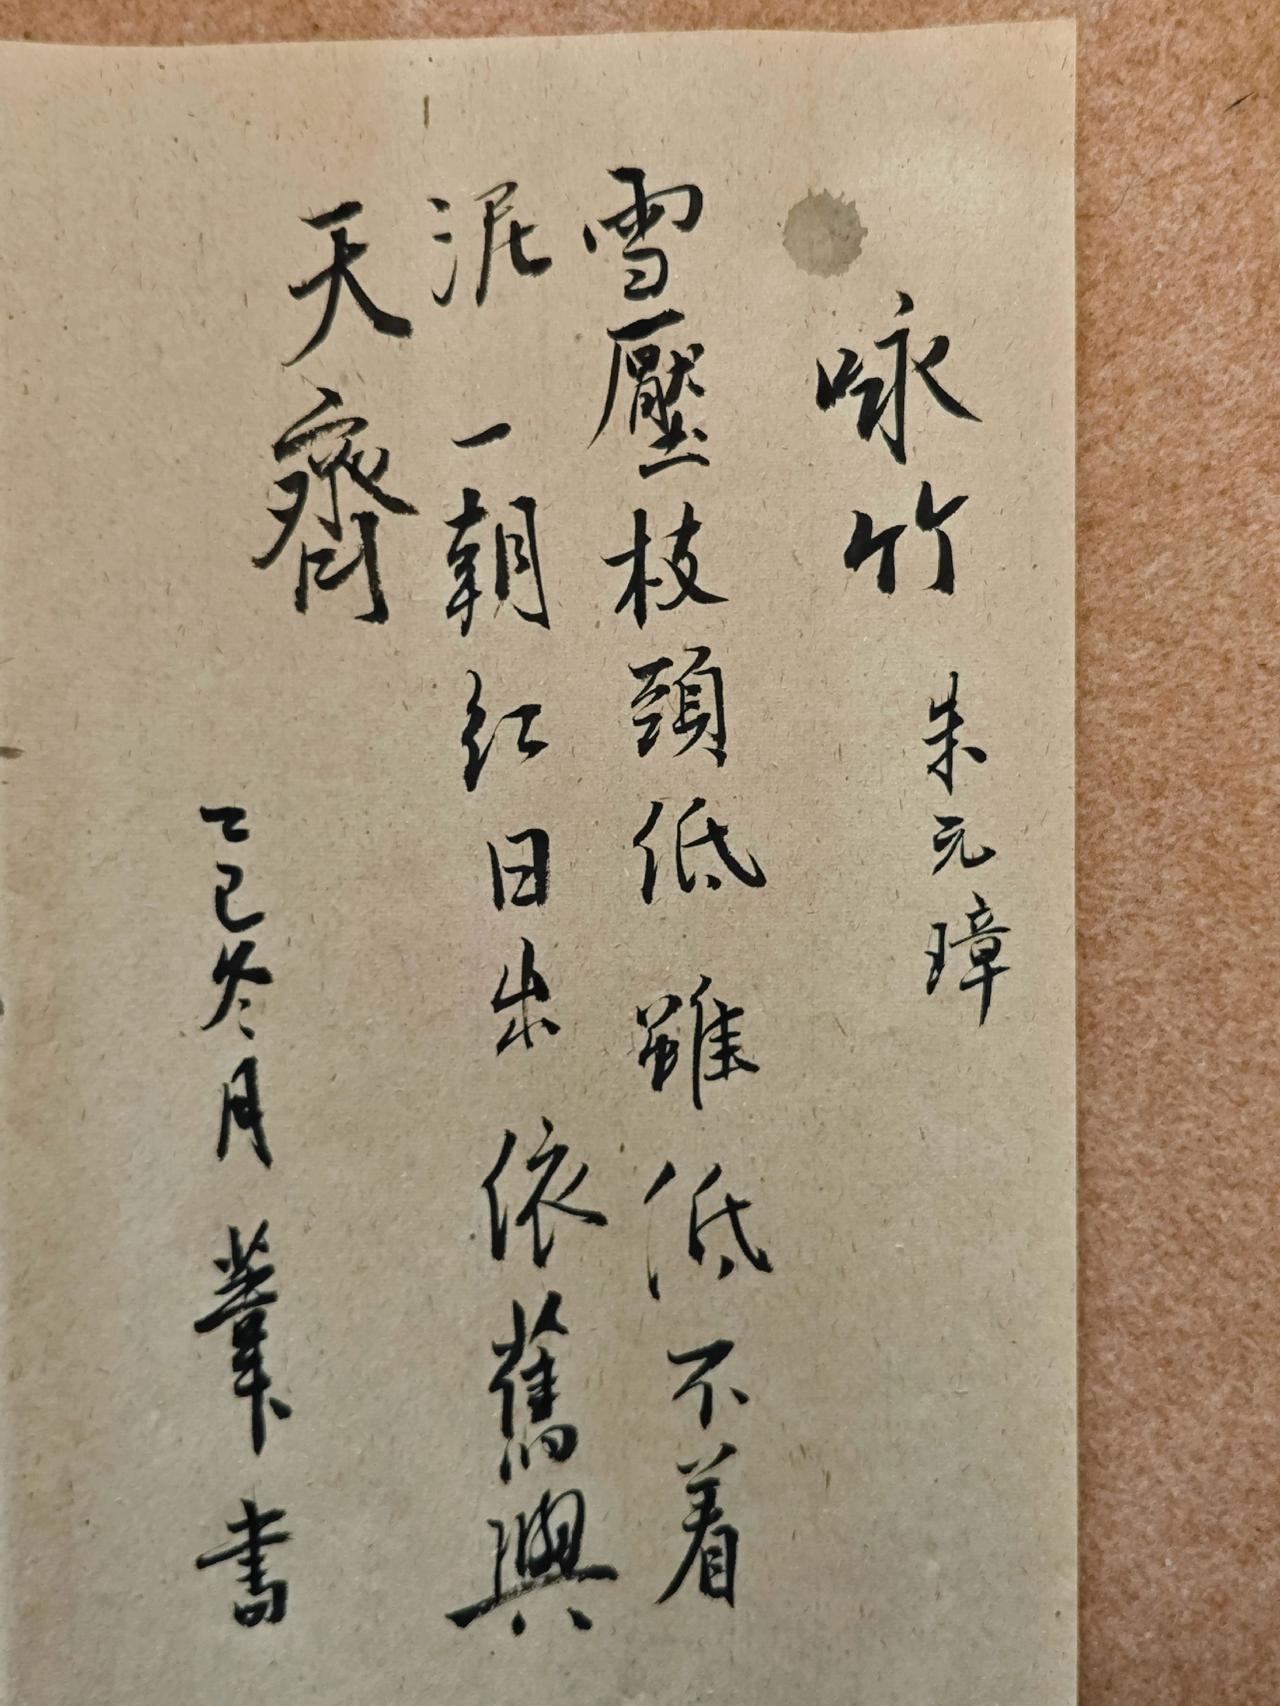 咏竹 朱元璋
雪壓枝頭低 雖低不着
泥 一朝紅日出 依舊與
天齊
乙巳冬月 葦書